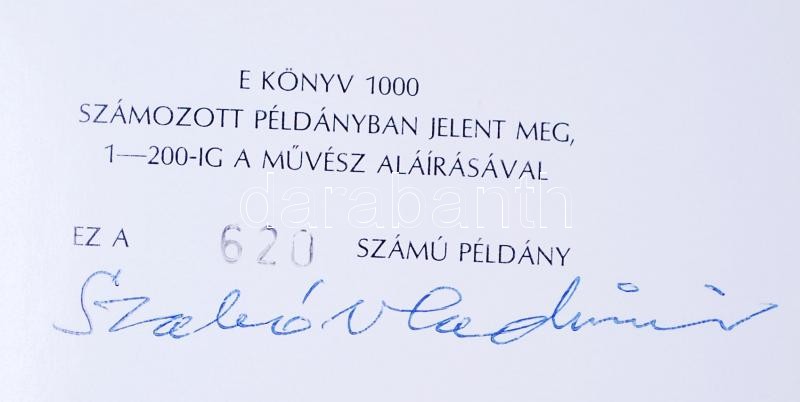 E KÖNYV 1000
SZÁMOZOTT PÉLDÁNYBAN JELENT MEG,
1—200-IG A MŰVÉSZ ALÁÍRÁSÁVAL
darabanth
EZ A 620 SZÁMÚ PÉLDÁNY
Szabó Vladimir